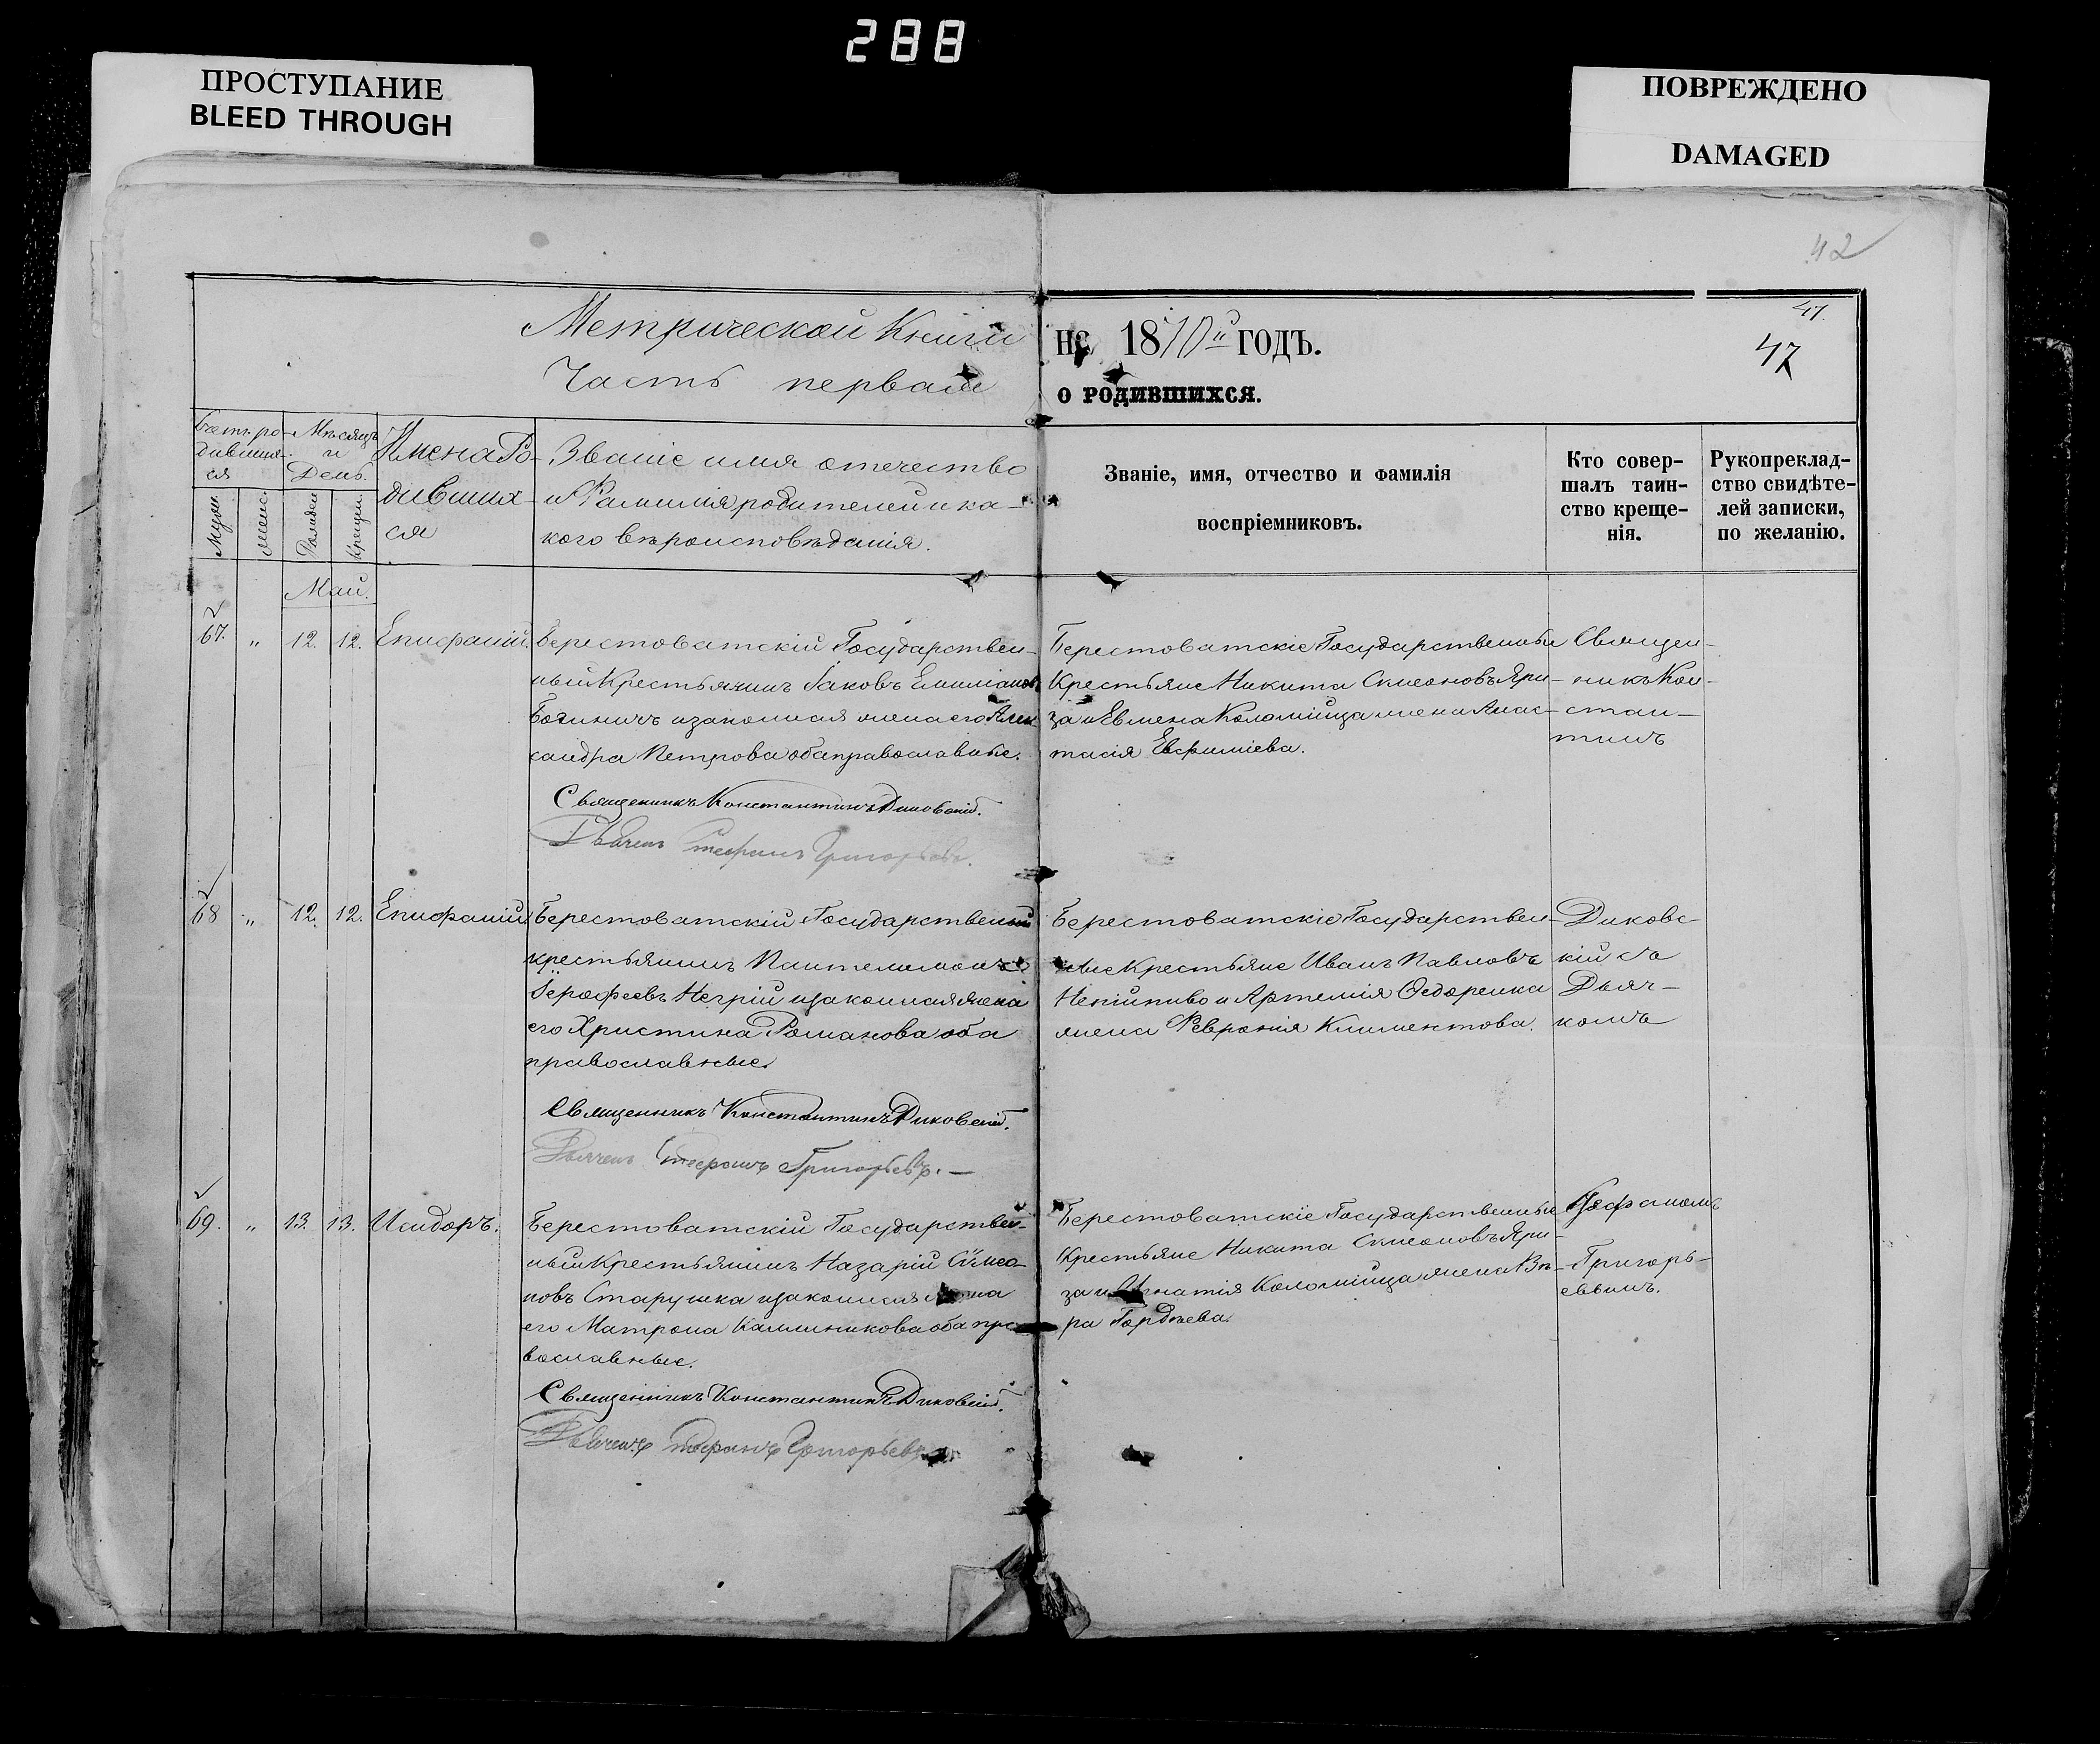 288
ПРОСТУПАНИЕ
BLEED THROUGH
ПОВРЕЖДЕНО
DAMAGED
42
Метрической Книги
Часть первая
на 1870й ГОДЪ.
о родившихся.
47.
47
Счетъ ро-
дивших-
ся
Мѣсяцъ
и
День.
Имена Ро-
дивших-
ся
Муж.
женс.
Рожден.
Крещен.
Званіе имя отечество
и Фамилія родителей и ка-
кого вѣроисповѣданія.
Званіе, имя, отчество и фамилія
воспріемниковъ.
Кто совер-
шалъ таин-
ство креще-
нія.
Рукоприклад-
ство свидѣте-
лей записки,
по желанію.
Май.
67. " 12. 12. Епифаній.
Берестоватскій Государствен-
ный Крестьянинъ Іаковъ Емиліановъ
и законная жена его Алек-
сандра Петрова оба православные.
Священникъ Константинъ Диковскій.
Дьячекъ Стефанъ Григорьевъ.
Берестоватскіе Государственные
Крестьяне Никита Симеоновъ Яри-
за и Евмена Коломійца жена Анас-
тасія Евфиміева.
Священ-
никъ Кон-
стан-
тинъ
68 " 12. 12. Епифаній
Берестоватскій Государственный
крестьянинъ Пантелимонъ
Іерофеевъ Негрій и законная жена
его Христина Романова оба
православные.
Священникъ Константинъ Диковскій.
Дьячекъ Стефанъ Григорьевъ. —
Берестоватскіе Государствен-
ные Крестьяне Иванъ Павловъ
Непійпиво и Артемія Ѳедоренка
жена Февронія Климентова.
Диковс-
кій съ
Дьяч-
комъ
69. " 13. 13. Исидоръ.
Берестоватскій Государствен-
ный Крестьянинъ Назарій Симео-
новъ Старушка и законная жена
его Матрона Каллиникова оба пра-
вославные.
Священникъ Константинъ Диковскій.
Дьячекъ Стефанъ Григорьевъ
Берестоватскіе Государственные
Крестьяне Никита Симеоновъ Яри-
за и Игнатія Коломійца жена Вѣ-
ра Гордѣева.
Стефаномъ
Григорь-
евымъ.